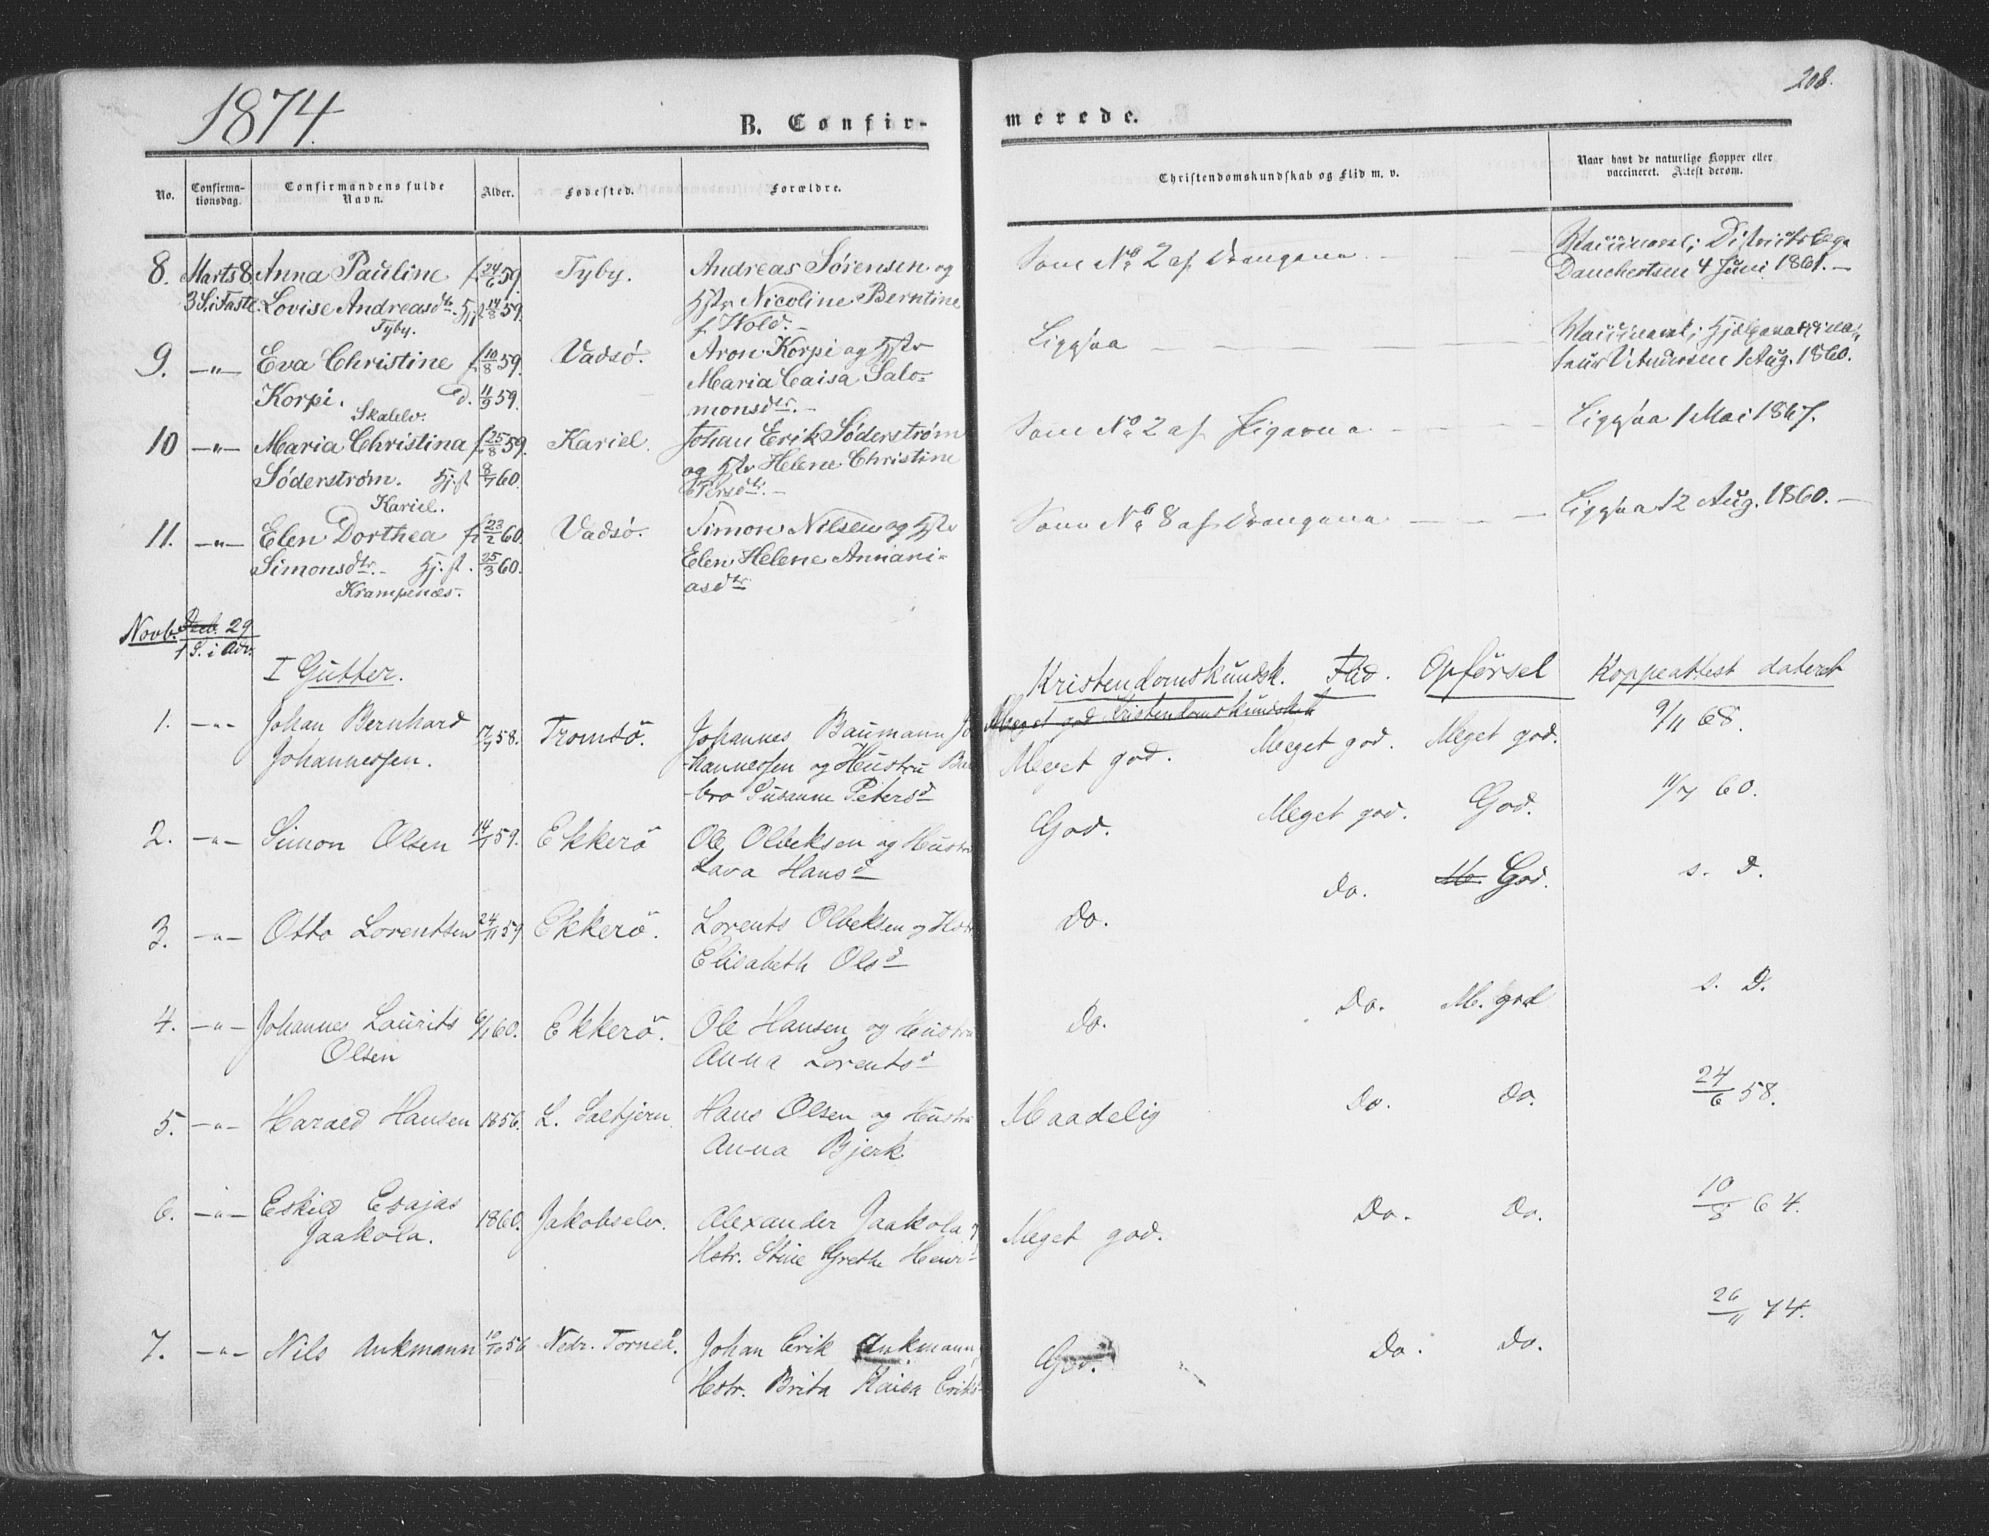 1874.
208.
B. Confir-
merede.
No.
Confirma-
tionsdag.
Confirmandens fulde
Navn.
Alder.
Fødested.
Forældre.
Christendomskundskab og Flid m. v.
Naar havt de naturlige Kopper eller
vaccineret. Attest derom.
8. Marts 8. Anna Pauline f. 24/6 59. Tyby. Andreas Sørensen og
3 S. i Faste. Lovise Andreasdtr. Hj. f. 14/8 59. Hstr Nicoline Berntine
Tyby. f. Wold. -
Som No 2 af Drengene - - -
Vaccineret; Districtslæge
Danchertsen 4 Juni 1861. -
9. -"- Eva Christine f. 10/8 59. Vadsø. Aron Korpi og Hstr
Korpi. d. 11/9 59. Maria Caisa Salo-
Skalelv. monsdtr. -
Ligesaa - - -
Vaccineret; Hjælpevaccina-
1 Aug. 1860.
10 -"- Maria Christina f. 25/8 59. Kariel. Johan Erik Søderstrøm
Søderstrøm. Hj. f. 8/7 60. og Hstr Helene Christine
Kariel. Persdtr. -
Som No 2 af Pigerne - - -
Ligesaa 1 Mai 1867.
11. -"- Elen Dorthea f. 23/2 60. Vadsø. Simon Nilsen og Hstr
Simonsdtr. - Hj. f. 25/3 60. Elen Helene Annani-
Krampenæs. asdtr
Som No 8 af Drengene - - -
Ligesaa 12 Aug. 1860. -
Novb. Decb. 29
1 S. i Adv.
I Gutter.
Kristendomskundsk. Flid. Opförsel Koppeattest dateret
Meget god Kristendomskundskab
1. -"- Johan Bernhard 17/7 58. Tromsö. Johannes Baumann Jo
Johannessen. -hannessen og Hustru Bar
-bro Susanne Petersd
Meget god. Meget god. Meget god. 9/11 68.
2. -"- Simon Olsen 14/1 59. Ekkerö Ole Olbeksen og Hustru
Lava Hansd
God. Meget god. God. 11/7 60.
3. -"- Otto Lorentsen 24/11 59 Ekkerö. Lorents Olbeksen og Hstr
Elisabeth Olsd
Do. Do. M. God. s. D.
4. -"- Johannes Laurits 6/1 60. Ekkerö. Ole Hansen og Hustru
Olsen Anna Lorentsd
Do. Do. M. god s. D.
5. -"- Harald Hansen 1856. L. Hans Olsen og Hustru
Anna Bjerk
Maadelig Do. Do. 24/6 58.
6. -"- Eskild Esajas 1860. Jakobselv. Alexander Jaakola og
Jaakola. Hstr. Stine Grethe Henr
Meget god. Do. Do. 10/8 64.
7. -"- Nils Ankmann 10/10 56 Nedr. Torneå. Johan Erik Ankmann,
Hstr. Brita Kaisa Eriks
God. Do. Do. 26/11 74.